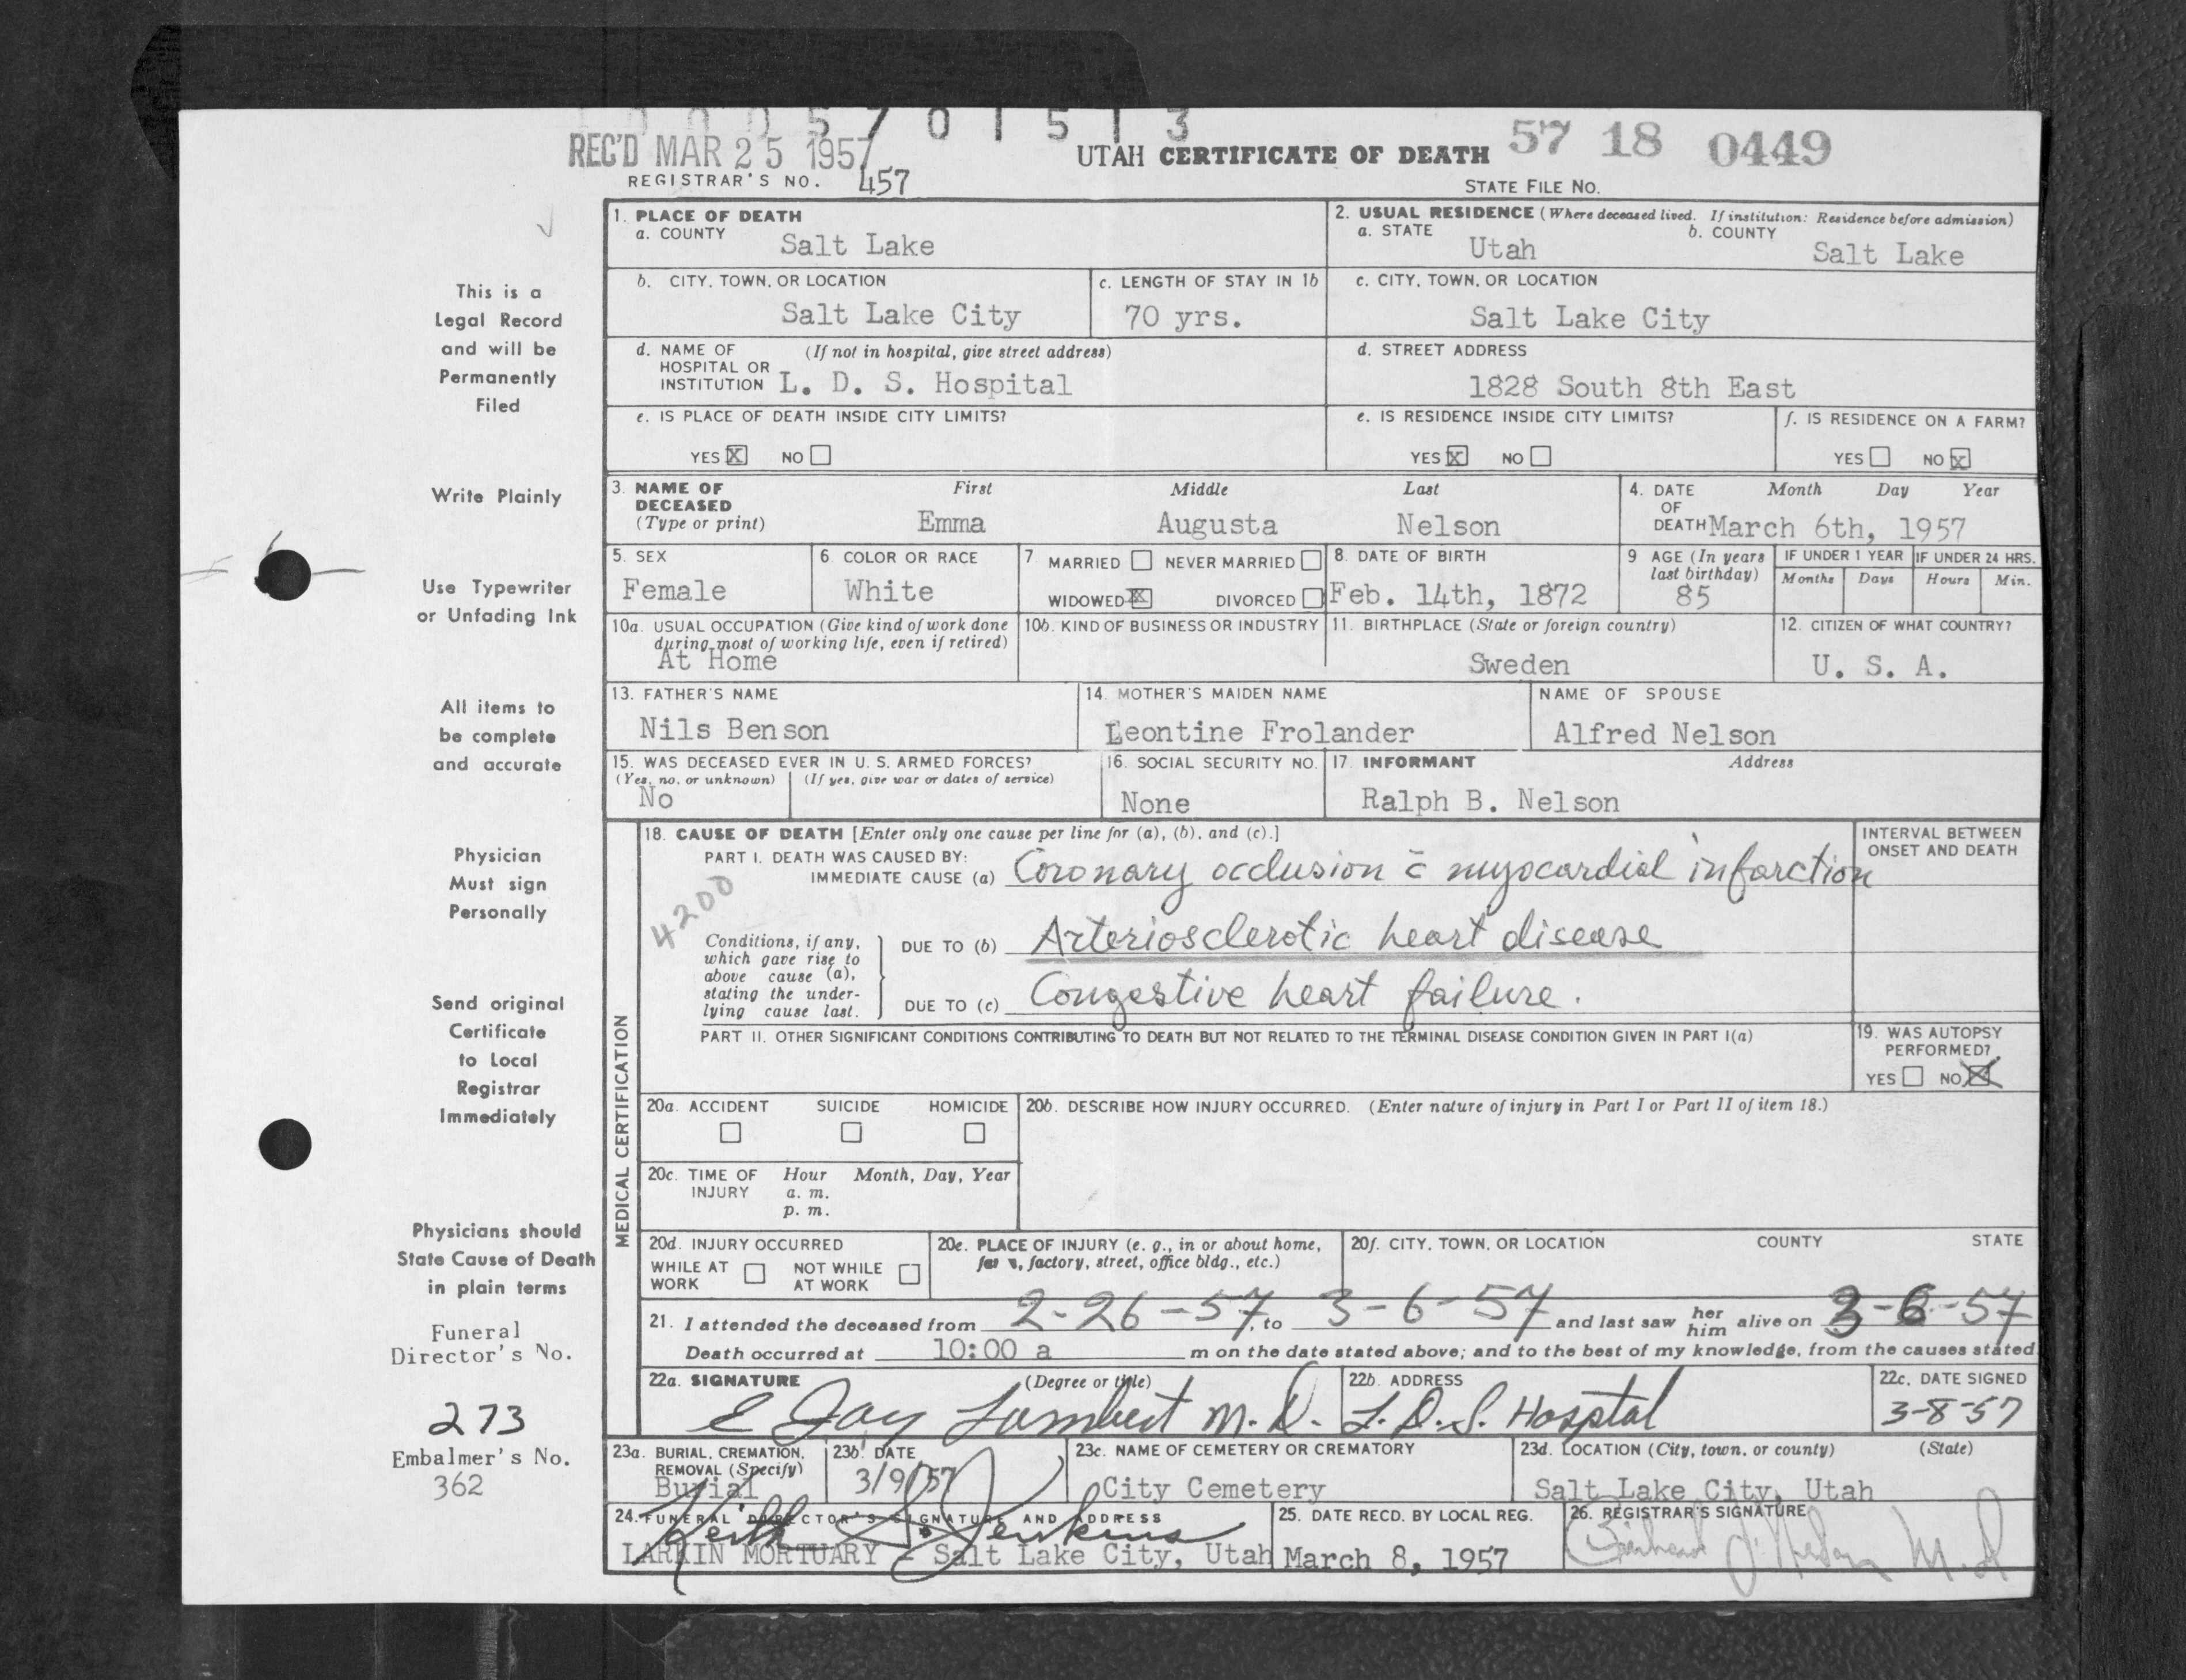 0 0 0 5 7 0 1 5 1 3
REC'D MAR 25 1957
UTAH CERTIFICATE OF DEATH 57 18 0449
REGISTRAR'S NO. 457
STATE FILE NO.
This is a
Legal Record
and will be
Permanently
Filed
Write Plainly
Use Typewriter
or Unfading Ink
All items to
be complete
and accurate
Physician
Must sign
Personally
Send original
Certificate
to Local
Registrar
Immediately
Physicians should
State Cause of Death
in plain terms
Funeral
Director's No.
273
Embalmer's No.
362
1. PLACE OF DEATH
a. COUNTY Salt Lake
2. USUAL RESIDENCE (Where deceased lived. If institution: Residence before admission)
a. STATE Utah b. COUNTY Salt Lake
b. CITY, TOWN, OR LOCATION
Salt Lake City
c. LENGTH OF STAY IN 1b
70 yrs.
c. CITY, TOWN, OR LOCATION
Salt Lake City
d. NAME OF (If not in hospital, give street address)
HOSPITAL OR
INSTITUTION L. D. S. Hospital
d. STREET ADDRESS
1828 South 8th East
e. IS PLACE OF DEATH INSIDE CITY LIMITS?
YES X NO
e. IS RESIDENCE INSIDE CITY LIMITS?
YES X NO
f. IS RESIDENCE ON A FARM?
YES NO X
3. NAME OF First Middle Last
DECEASED
(Type or print) Emma Augusta Nelson
4. DATE Month Day Year
OF
DEATH March 6th, 1957
5. SEX
Female
6. COLOR OR RACE
White
7. MARRIED NEVER MARRIED
WIDOWED X DIVORCED
8. DATE OF BIRTH
Feb. 14th, 1872
9 AGE (In years
last birthday)
85
IF UNDER 1 YEAR
Months Days
IF UNDER 24 HRS.
Hours Min.
10a. USUAL OCCUPATION (Give kind of work done
during most of working life, even if retired)
At Home
10b. KIND OF BUSINESS OR INDUSTRY
11. BIRTHPLACE (State or foreign country)
Sweden
12. CITIZEN OF WHAT COUNTRY?
U. S. A.
13. FATHER'S NAME
Nils Benson
14. MOTHER'S MAIDEN NAME
Leontine Frolander
NAME OF SPOUSE
Alfred Nelson
15. WAS DECEASED EVER IN U. S. ARMED FORCES?
(Yes, no, or unknown) (If yes, give war or dates of service)
No
16. SOCIAL SECURITY NO.
None
17. INFORMANT Address
Ralph B. Nelson
MEDICAL CERTIFICATION
18. CAUSE OF DEATH [Enter only one cause per line for (a), (b), and (c).]
PART I. DEATH WAS CAUSED BY:
IMMEDIATE CAUSE (a) Coronary occlusion c̄ myocardial infarction
INTERVAL BETWEEN
ONSET AND DEATH
4200
Conditions, if any,
which gave rise to
above cause (a),
stating the under-
lying cause last.
DUE TO (b) Arteriosclerotic heart disease
DUE TO (c) Congestive heart failure.
PART II. OTHER SIGNIFICANT CONDITIONS CONTRIBUTING TO DEATH BUT NOT RELATED TO THE TERMINAL DISEASE CONDITION GIVEN IN PART I(a)
19. WAS AUTOPSY
PERFORMED?
YES NO X
20a. ACCIDENT SUICIDE HOMICIDE
20b. DESCRIBE HOW INJURY OCCURRED. (Enter nature of injury in Part I or Part II of item 18.)
20c. TIME OF Hour Month, Day, Year
INJURY a. m.
p. m.
20d. INJURY OCCURRED
WHILE AT NOT WHILE
WORK AT WORK
20e. PLACE OF INJURY (e. g., in or about home,
farm, factory, street, office bldg., etc.)
20f. CITY, TOWN, OR LOCATION COUNTY STATE
21. I attended the deceased from 2-26-57, to 3-6-57 and last saw her him alive on 3-6-57
Death occurred at 10:00 a m on the date stated above; and to the best of my knowledge, from the causes stated
22a. SIGNATURE (Degree or title)
E Jay Lambert M.D.
22b. ADDRESS
L.D.S. Hospital
22c. DATE SIGNED
3-8-57
23a. BURIAL, CREMATION,
REMOVAL (Specify)
Burial
23b. DATE
3/9/57
23c. NAME OF CEMETERY OR CREMATORY
City Cemetery
23d. LOCATION (City, town, or county) (State)
Salt Lake City, Utah
24. FUNERAL DIRECTOR'S SIGNATURE AND ADDRESS
Keith S. Jenkins
LARKIN MORTUARY - Salt Lake City, Utah
25. DATE RECD. BY LOCAL REG.
March 8, 1957
26. REGISTRAR'S SIGNATURE
M.D